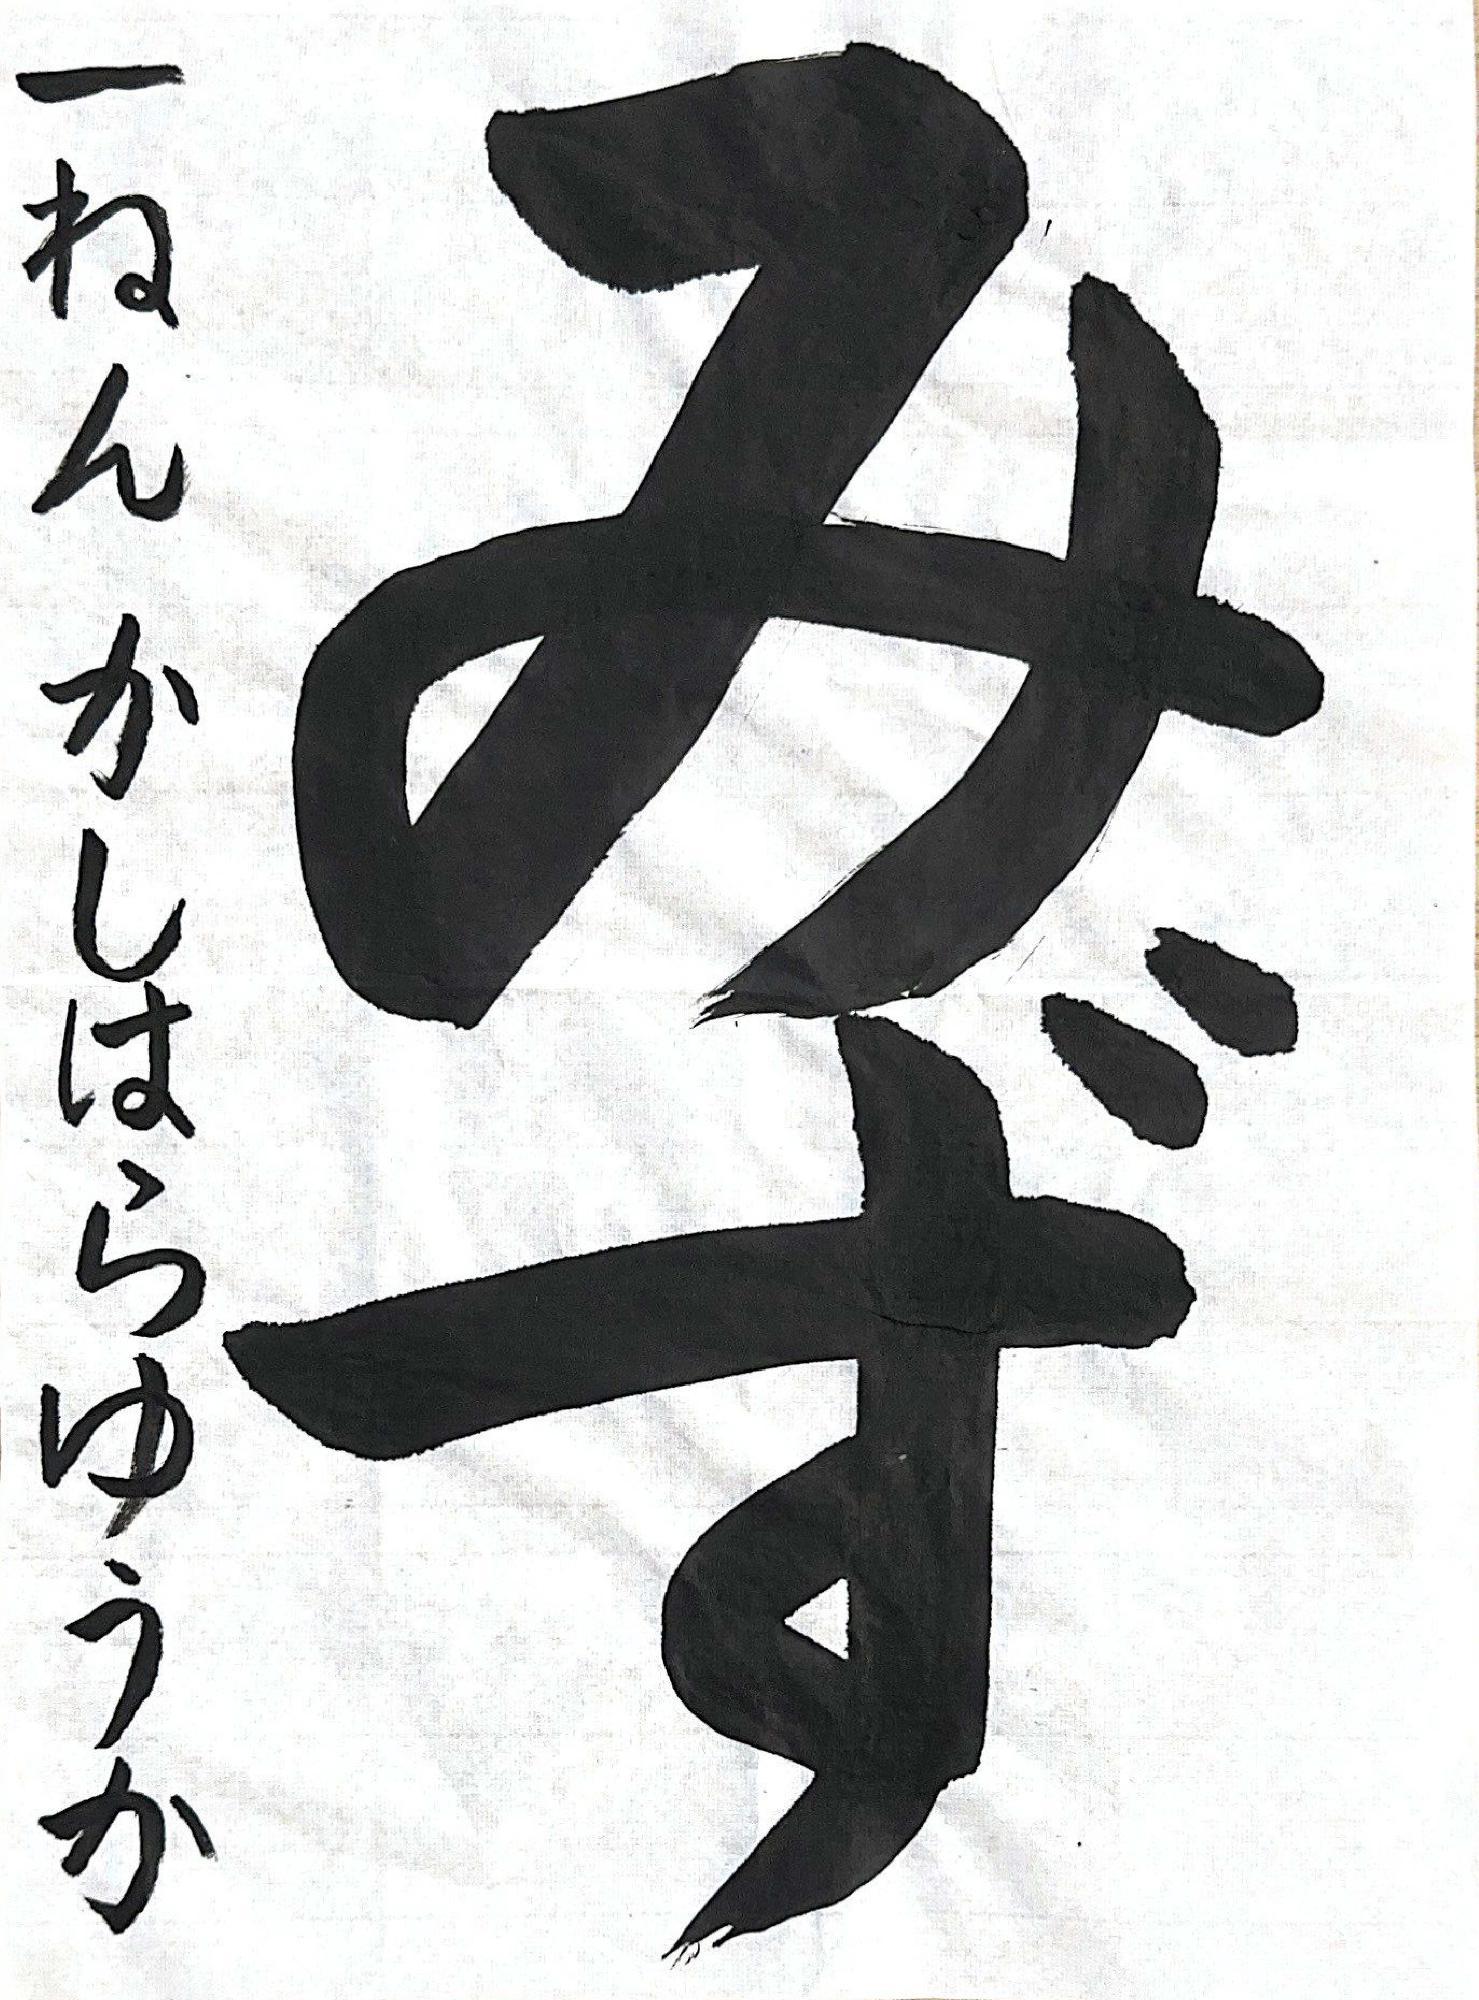 みず
一ねんかしはらゆうか